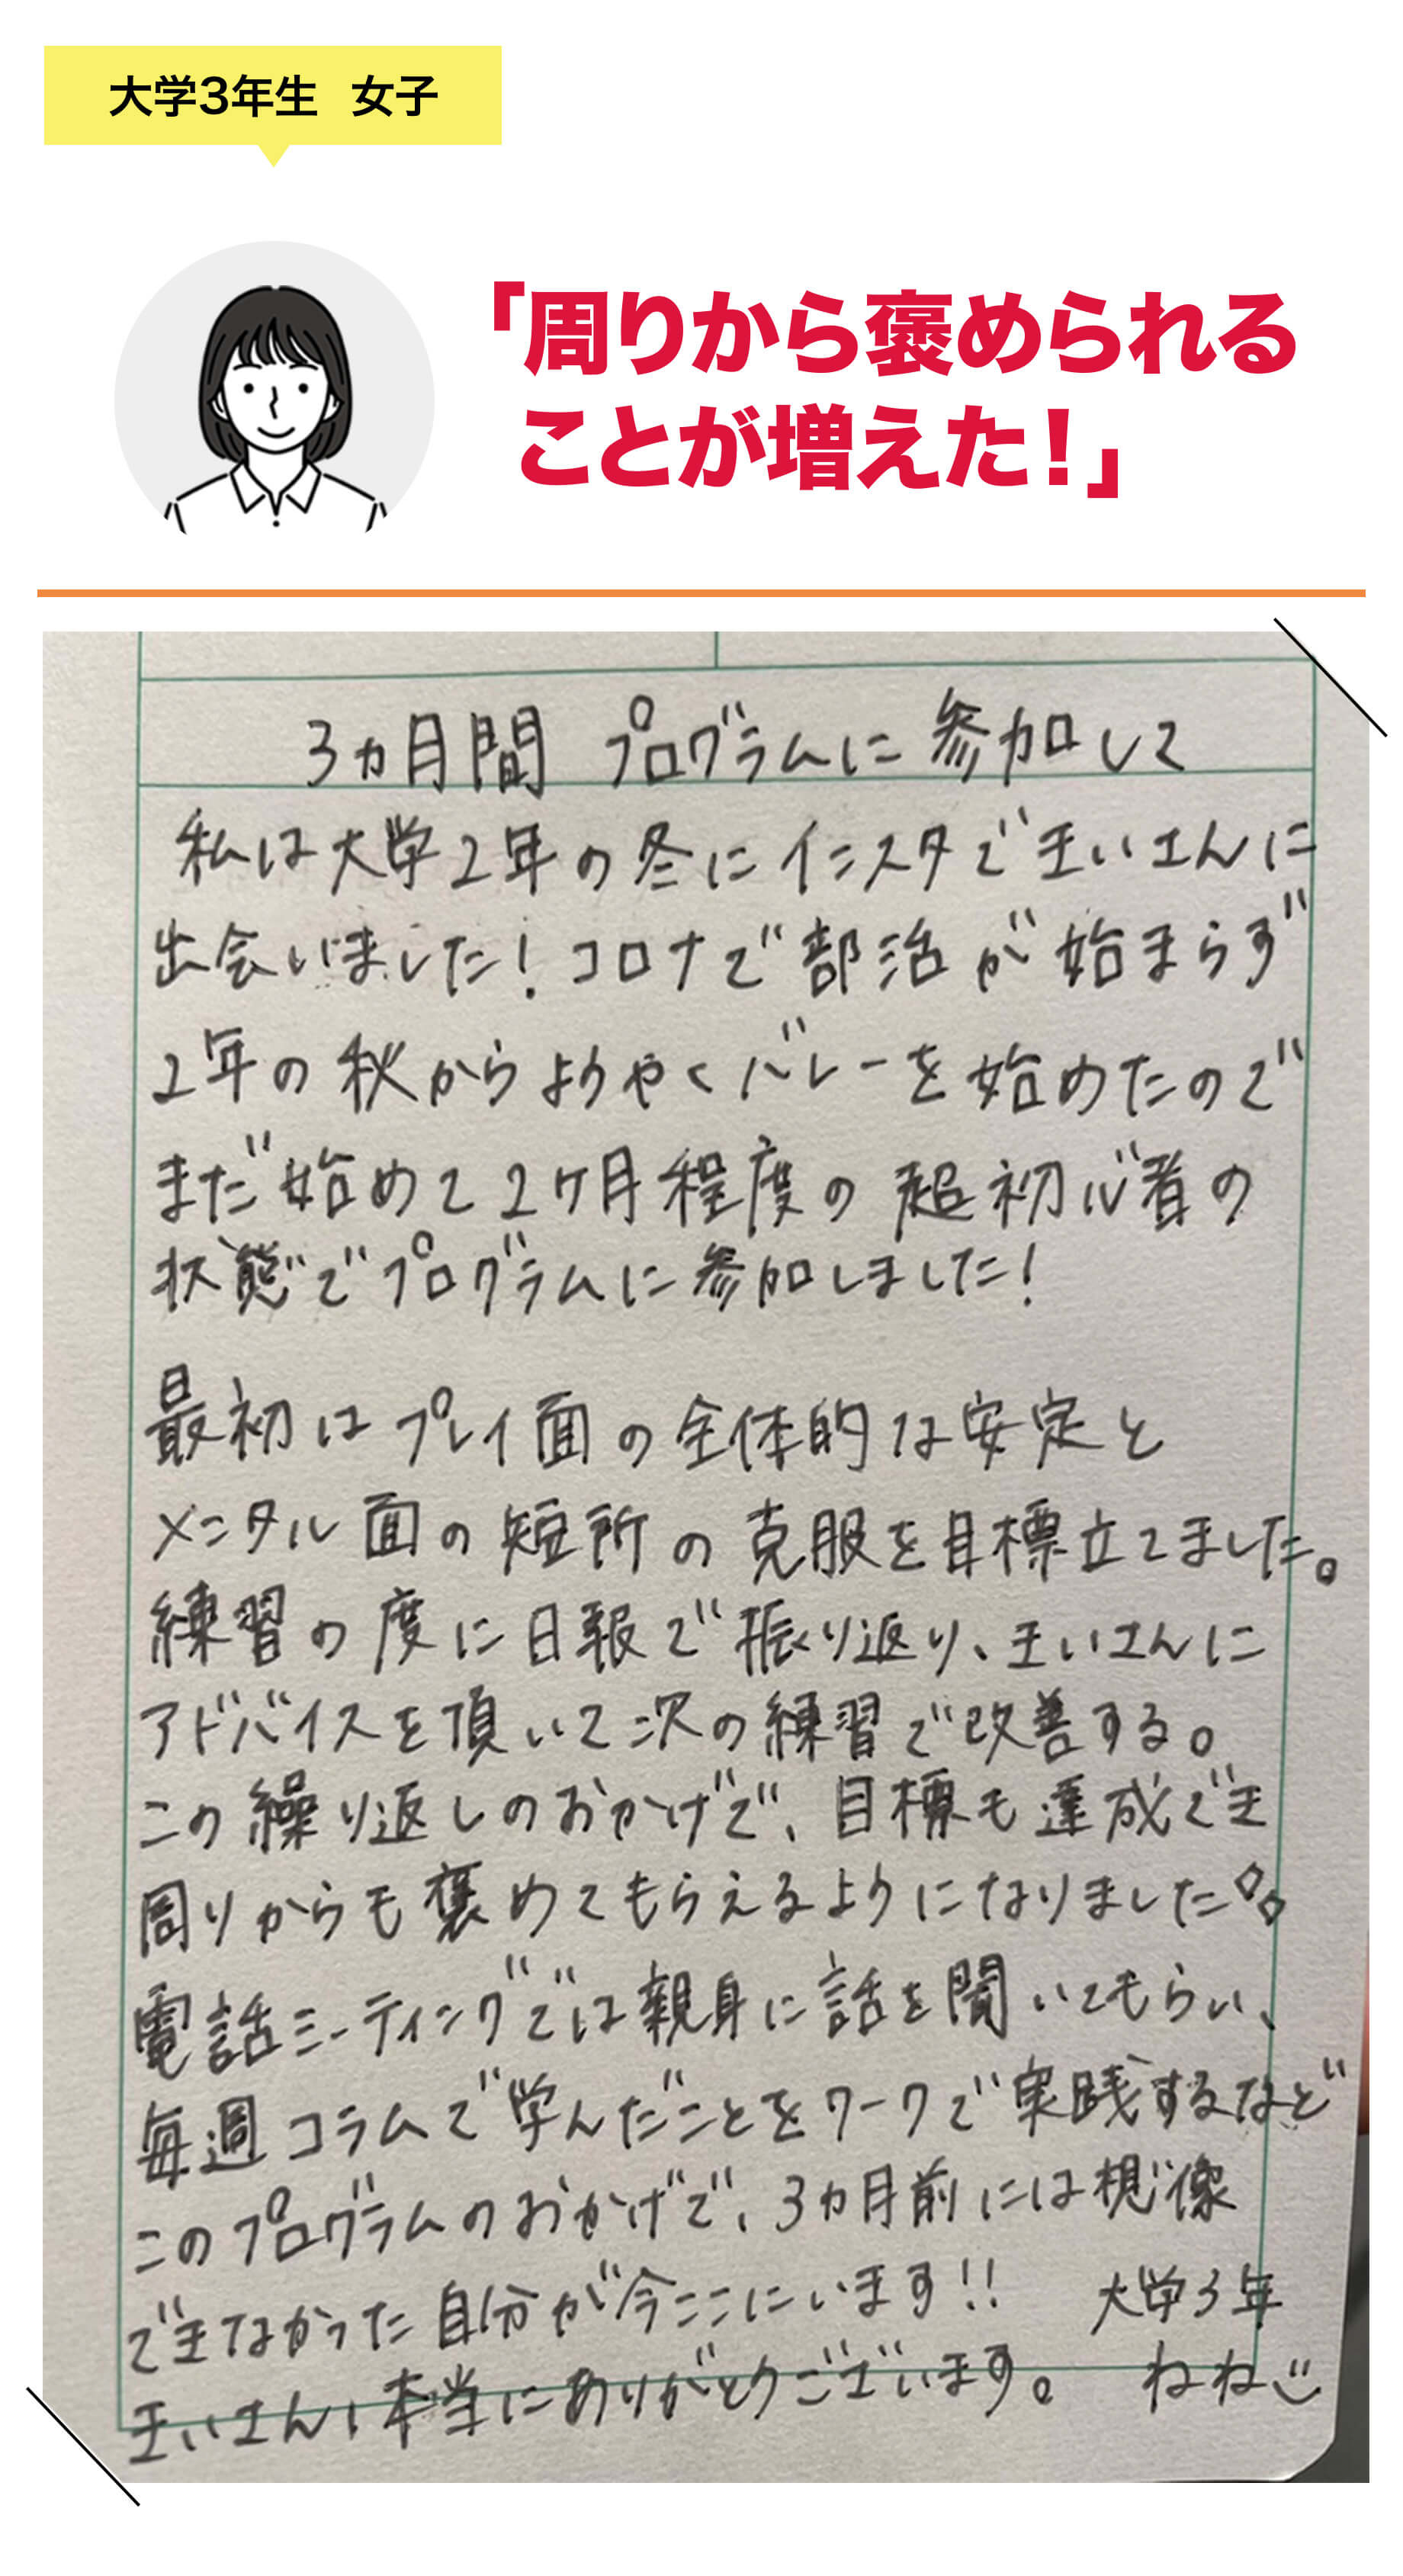 大学3年生 女子
「周りから褒められる
ことが増えた!」
3ヵ月間 プログラムに参加して
私は大学2年の冬にインスタでまいさんに
出会いました!コロナで部活が始まらず
2年の秋からようやくバレーを始めたので
まだ始めて2ヶ月程度の超初心者の
状態でプログラムに参加しました!
最初はプレイ面の全体的な安定と
メンタル面の短所の克服を目標立てました。
練習の度に日報で振り返り、まいさんに
アドバイスを頂いて次の練習で改善する。
この繰り返しのおかげで、目標も達成でき
周りからも褒めてもらえるようになりました。
電話ミーティングでは親身に話を聞いてもらい、
毎週コラムで学んだことをワークで実践するなど
このプログラムのおかげで、3ヵ月前には想像
できなかった自分が今ここにいます!!
大学3年
まいさん、本当にありがとうございます。
ねね